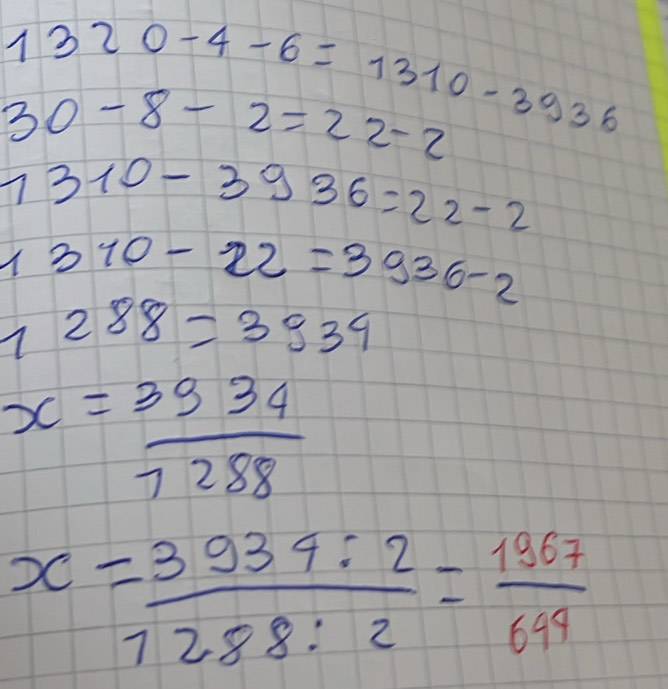 1320-4-6=1310-3936
30-8-2=22-2
1310-3936=22-2
1310-22=3936-2
1288=3934
x=3934/1288
x=3934:2/1288:2=1967/644